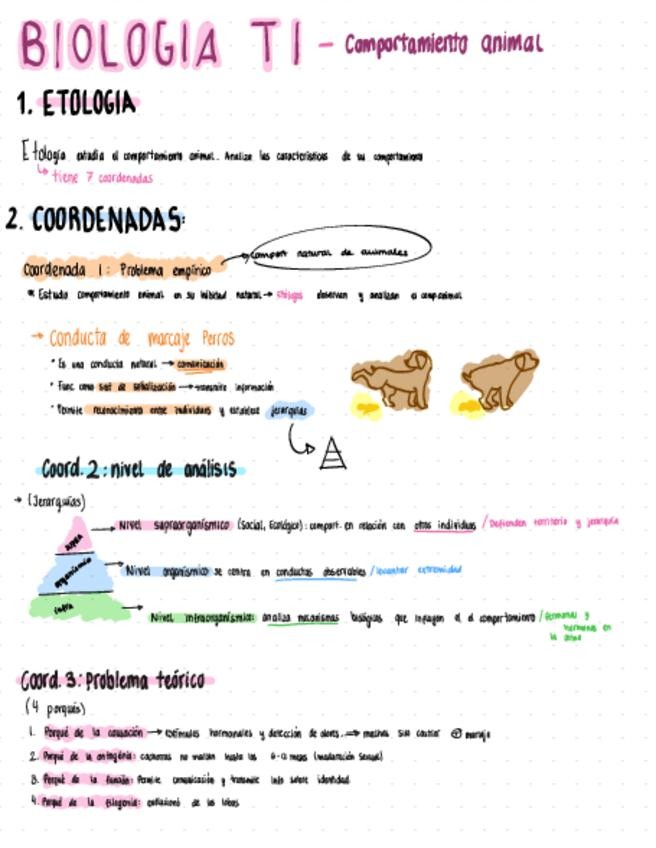 BIOLOGIA T1 - Comportamiento animal
1. ETOLOGIA
Etología estudia el comportamiento animal. Analiza las características de su comportamiento
↳ tiene 7 coordenadas
2. COORDENADAS:
Coordenada 1: Problema empírico → comport natural de animales
* Estudo comportamiento animal en su hábitat natural → observan y analizan el comp.animal
→ Conducta de marcaje Perros
• Es una conducta natural → comunicación
• Func como sist de señalización → transmite información
• Permite reconocimiento entre individuos y establece jerarquías
Coord. 2: nivel de análisis
→ (Jerarquías)
supra
organísmico
infra
Nivel supraorganísmico (Social, Ecológico): comport. en relación con otros individuos / Defienden territorio y jerarquía
Nivel organísmico se centra en conductas observables / levantar extremidad
Nivel infraorganísmico: analiza mecanismos biológicos que influyen el comportamiento / feromonas y
hormonas en
la orina
Coord. 3: Problema teórico
(4 porqués)
1. Porqué de la causación → estímulos hormonales y detección de olores. → machos sin castrar ⊕ marcaje
2. Porqué de la ontogénia: cachorros no marcan hasta los 6-12 meses (maduración sexual)
3. Porqué de la función: Permite comunicación y transmite info sobre identidad
4. Porqué de la filogenia: de los lobos